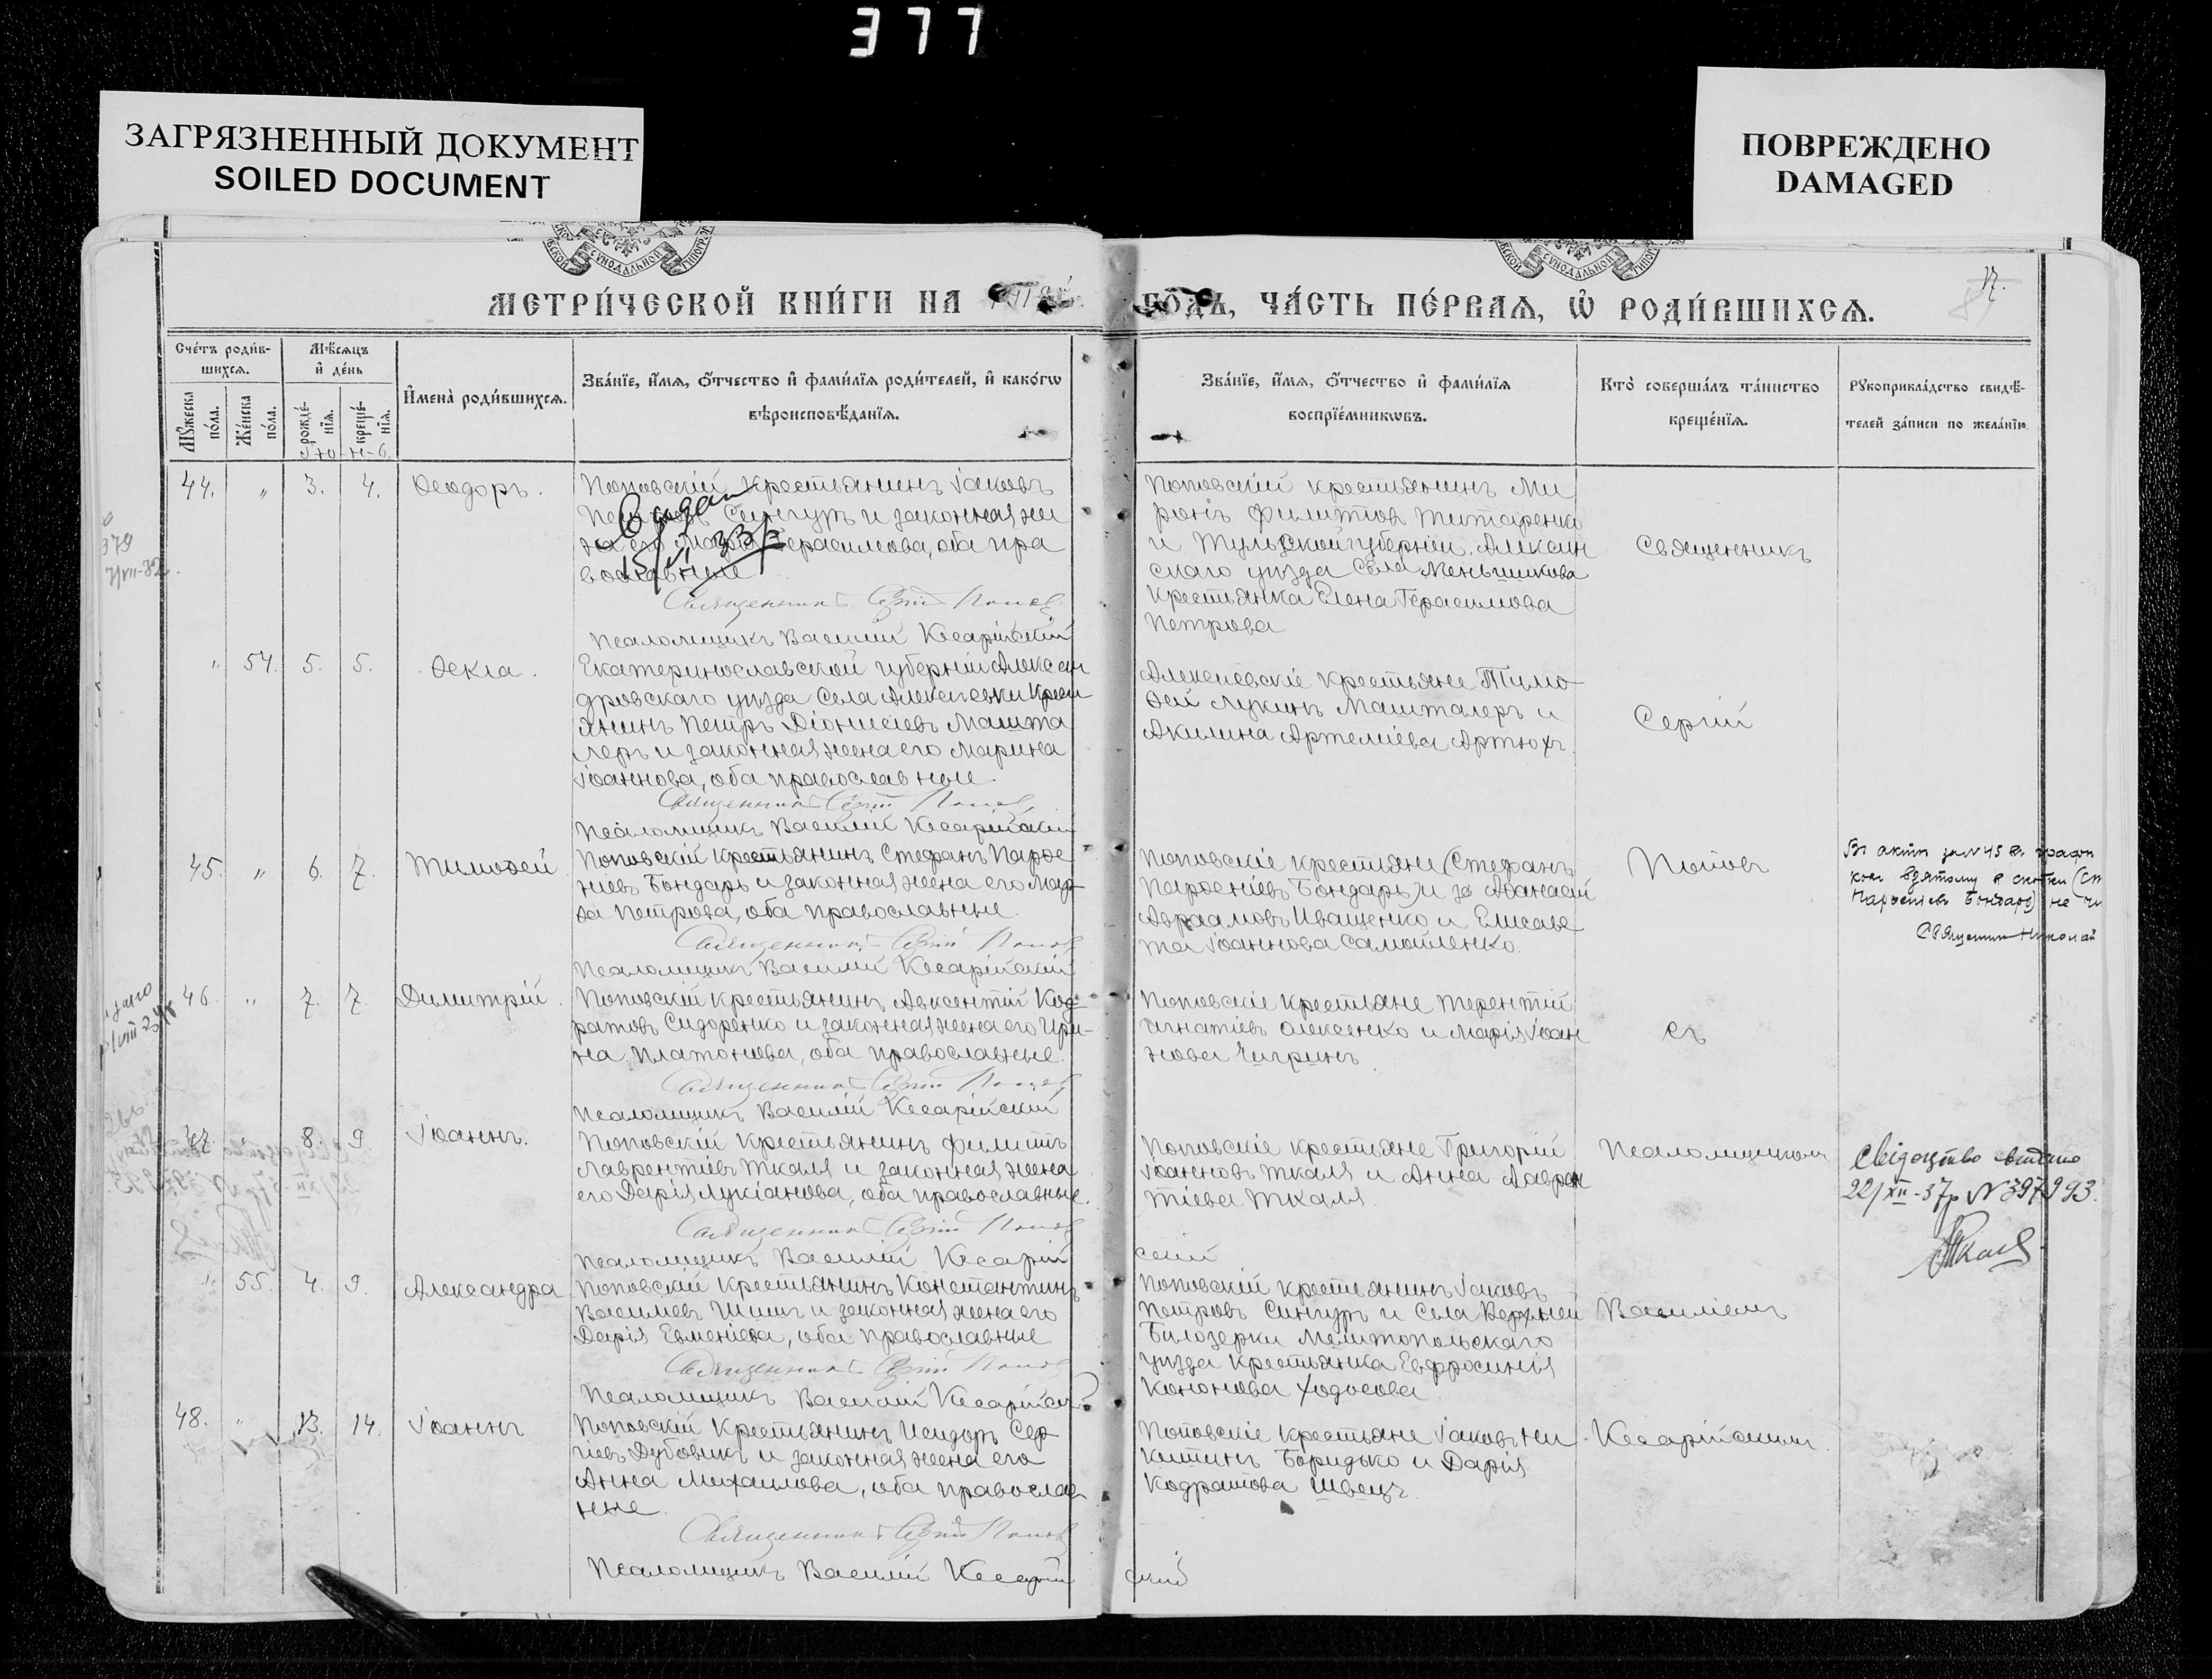 377
ЗАГРЯЗНЕННЫЙ ДОКУМЕНТ
SOILED DOCUMENT
ПОВРЕЖДЕНО
DAMAGED
МЕТРИ́ЧЕСКОЙ КНИ́ГИ НА
ГО́ДЪ, ЧА́СТЬ ПЕ́РВАЯ, Ѽ РОДИ́ВШИХСЯ.
17.
Сче́тъ роди́в-
шихся.
Мѣ́сяцъ
и҆ де́нь
Мꙋ́жеска
по́ла.
Же́нска
по́ла.
рожде́-
нїя.
креще́-
нїя.
И҆мена̀ роди́вшихся.
Зва́нїе, и҆́мя, ѻ҆́тчество и҆ фами́лїя роди́телей, и҆ како́гѡ
вѣроисповѣ́данїя.
Зва́нїе, и҆́мя, ѻ҆́тчество и҆ фами́лїя
воспрїе́мникѡвъ.
Кто̀ соверша́лъ та́инство
креще́нїя.
Рꙋкоприкла́дство свидѣ́-
телей за́писи по жела́нїю.
44. " 3. 4. Ѳеодоръ.
Поповскій крестьянинъ Іаковъ
Сингуръ и законная же
на его Герасимова, оба пра
вославные
Священникъ Сергій Попов
Псаломщикъ Василий Кесарійскій
Поповскій крестьянинъ Ми
ронъ Филиппов Титаренко
и Тульской губерніи, Алексин
скаго уѣзда села Меньшикова
крестьянка Елена Герасимова
Петрова
Священникъ
" 54. 5. 5. Ѳекла.
Екатеринославской губерніи Алексан
дровскаго уѣзда села Алексеевки крест
янинъ Петръ Діонисіевъ Машта
леръ и законная жена его Марина
Іоаннова, оба православные.
Священникъ Сергій Попов
Псаломщикъ Василій Кесарійскій
Алексеевскіе крестьяне Тимо
ѳей Лукинъ Машталеръ и
Акилина Артеміева Артюхъ.
Сергій
45. " 6. 7. Тимоѳей
Поповскій крестьянинъ Стефанъ Парѳе
ніевъ Бондарь и законная жена его Мар
ѳа Петрова, оба православные.
Священникъ Сергій Попов
Псаломщикъ Василій Кесарійскій
Поповскіе крестьяне (Стефанъ
Парѳеніевъ Бондарь) и Аѳанасій
Авраамовъ Иващенко и Елисаве
та Іоаннова Самойленко.
Поповъ
Въ актѣ за N 45 въ
взятому в скобки
Парѳеніевъ Бондарь) не
Священник Николай
46. " 7. 7. Димитрій.
Поповскій крестьянинъ Авксентій Код
ратовъ Сидоренко и законная жена его Ири-
на Платонова, оба православные.
Священникъ Сергій Попов
Псаломщикъ Василій Кесарійскій
Поповскіе крестьяне Терентій
Игнатіевъ Олексенко и Марія Іоан
нова Чигринъ
съ
47. " 8. 9. Іоаннъ.
Поповскій крестьянинъ Филиппъ
Лаврентіевъ Ткаля и законная жена
его Дарія Лукіанова, оба православные.
Священникъ Сергій Попов
Псаломщикъ Василій Кесарій
скій
Поповскіе крестьяне Григорій
Іоанновъ Ткаля и Анна Лаврен
тіева Ткаля
Псаломщикомъ
Свідоцтво видано
22/XII-37р N 397993.
" 55. 4. 9. Александра
Поповскій крестьянинъ Константинъ
Василіевъ Шишъ и законная жена его
Дарія Евменіева, оба православные
Священникъ Сергій Попов
Псаломщикъ Василій Кесарійск
Поповскій крестьянинъ Іаковъ
Петровъ Сингуръ и села Верхней
Бѣлозерки Мелитопольскаго
уѣзда крестьянка Евфросинія
Кононова Ходосова
Василіемъ
48. " 13. 14. Іоаннъ
Поповскій крестьянинъ Исидоръ Сер
гіевъ Дубовикъ и законная жена его
Анна Михайлова, оба православ
ные.
Священникъ Сергій Попов
Псаломщикъ Василій Кесарій
скій
Поповскіе крестьяне Іаковъ Ни
китинъ Боридько и Дарія
Кодратова Швецъ
Кесарійскимъ